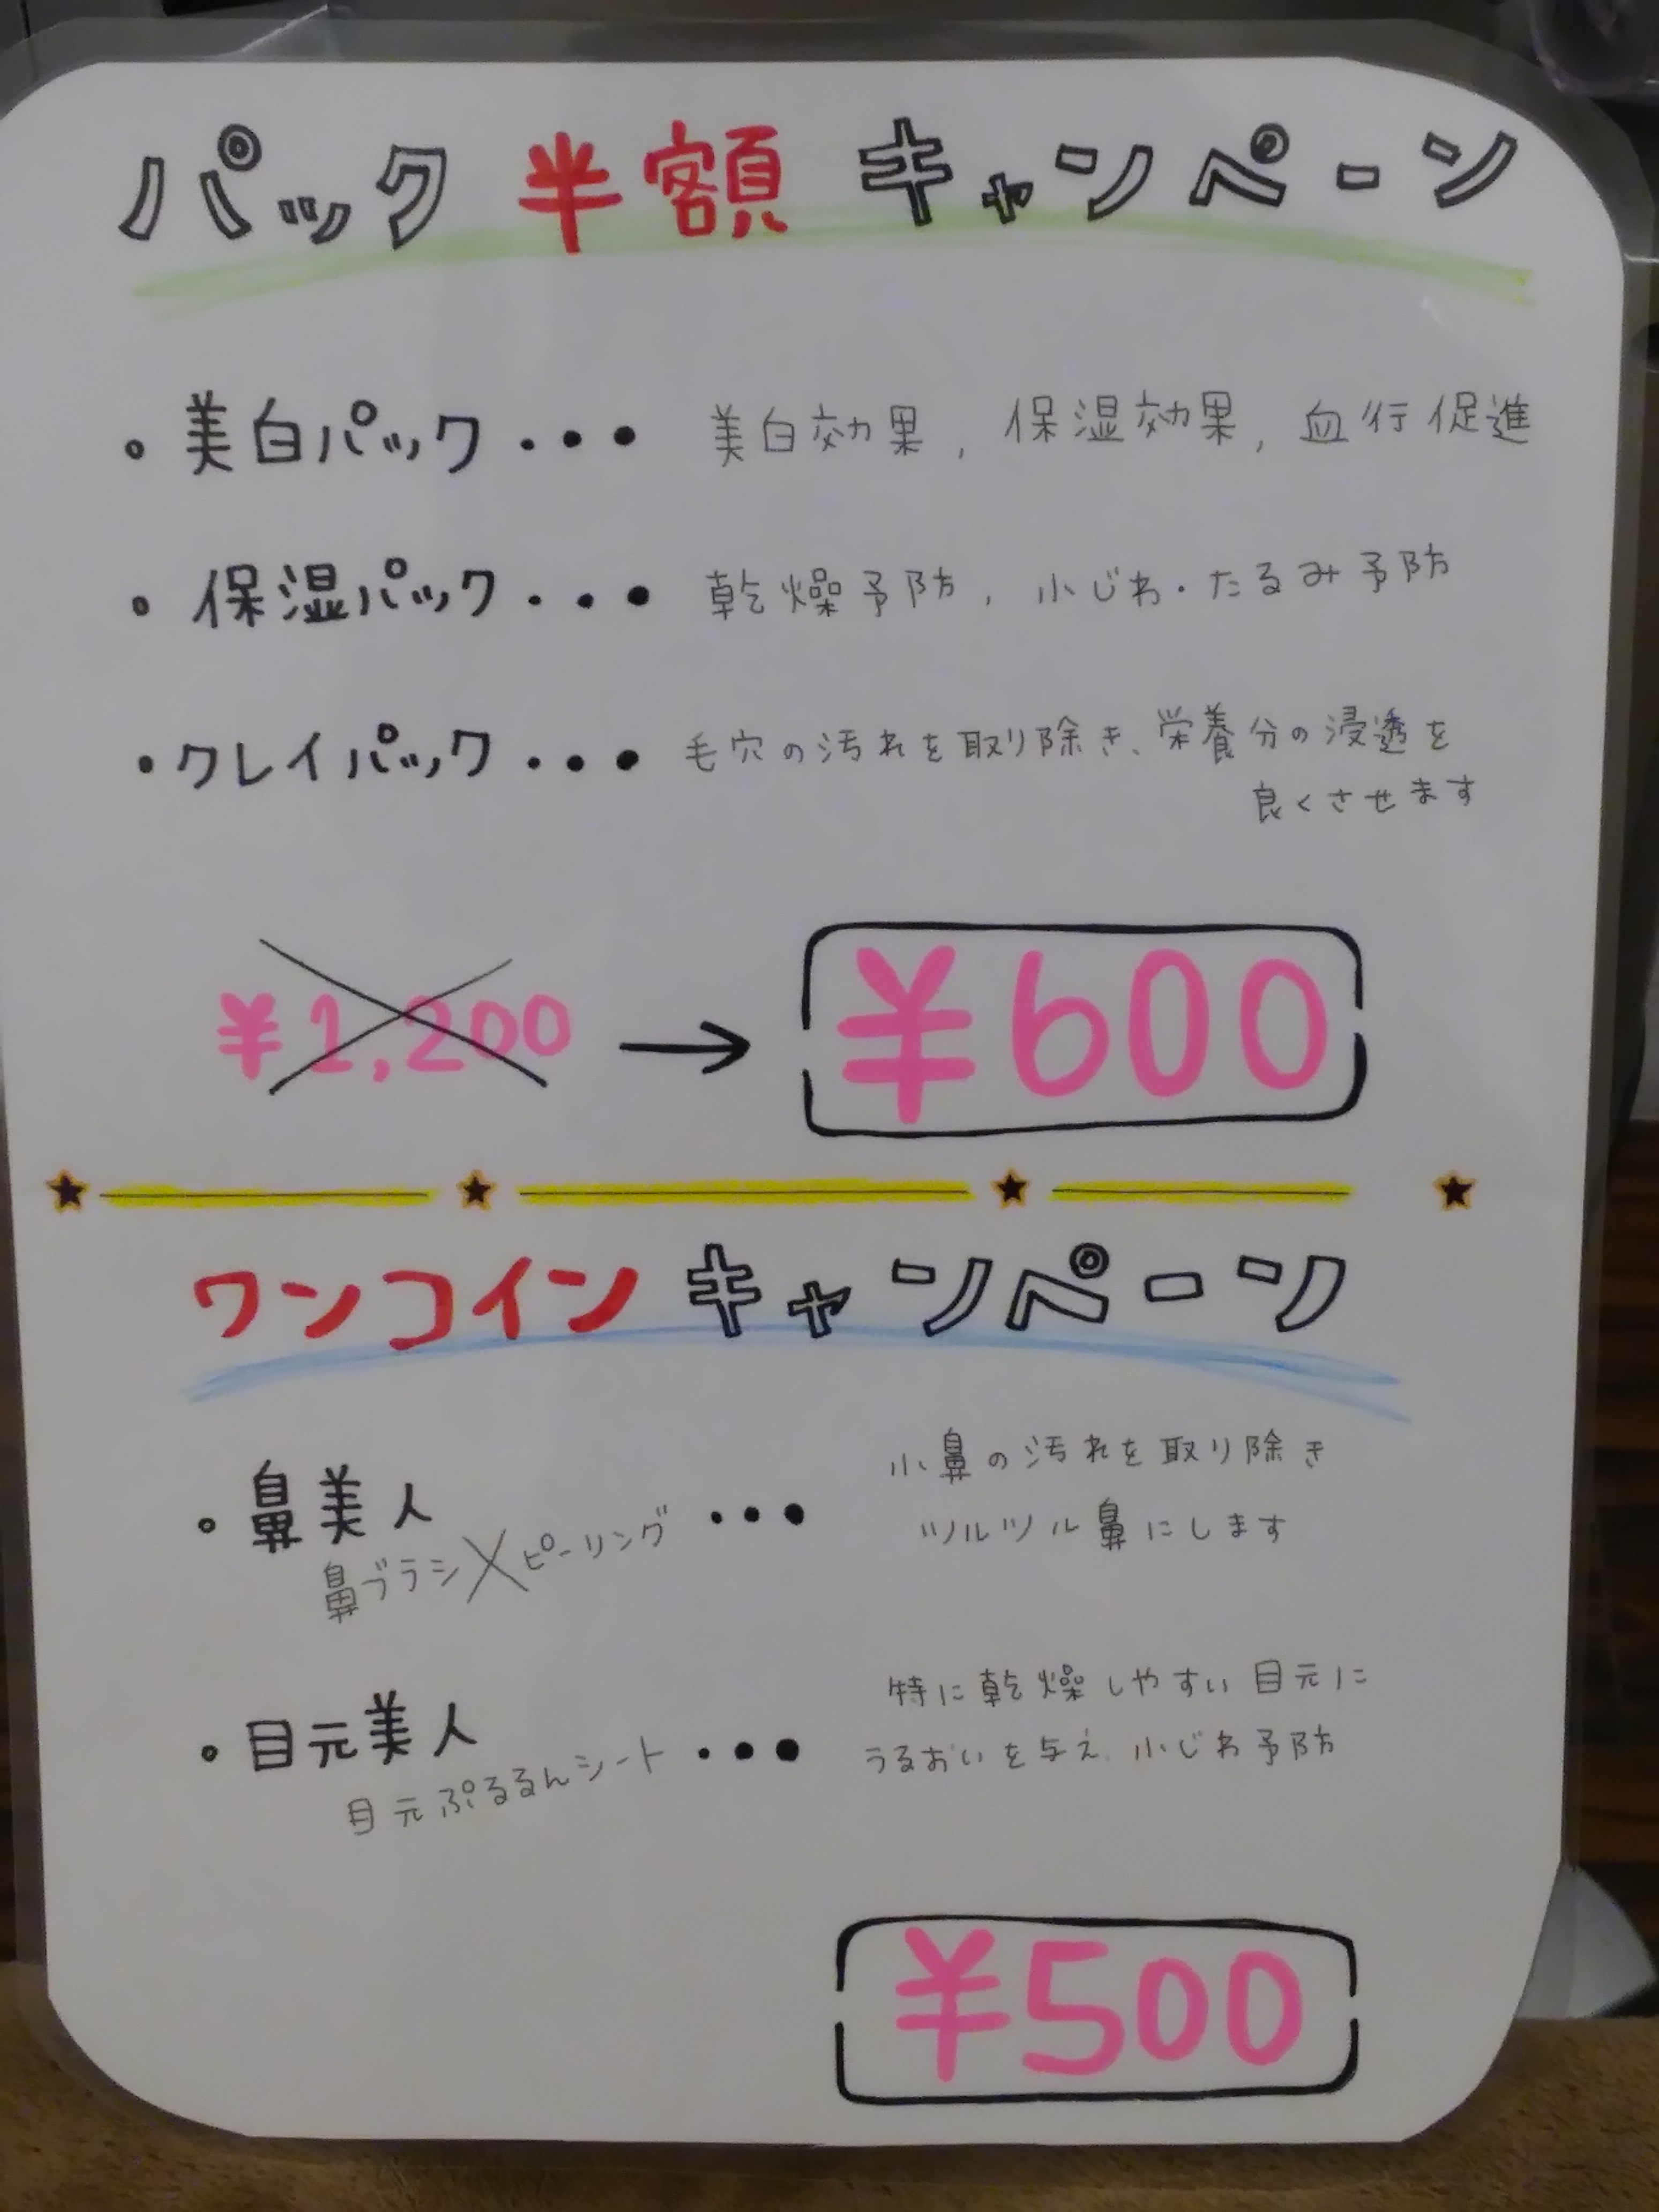 パック半額キャンペーン
・美白パック・・・ 美白効果, 保湿効果, 血行促進
・保湿パック・・・ 乾燥予防, 小じわ・たるみ予防
・クレイパック・・・ 毛穴の汚れを取り除き、栄養分の浸透を
良くさせます
¥1,200 → ¥600
ワンコインキャンペーン
・鼻美人 ・・・ 小鼻の汚れを取り除き
鼻ブラシ×ピーリング ツルツル鼻にします
・目元美人 ・・・ 特に乾燥しやすい目元に
目元ぷるるんシート うるおいを与え、小じわ予防
¥500